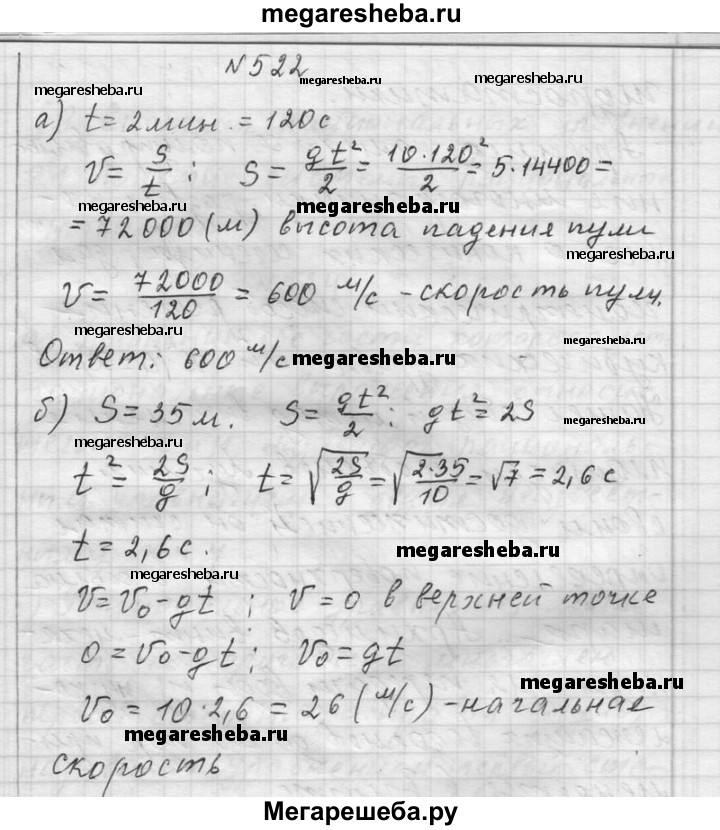 megaresheba.ru
N 522
megaresheba.ru megaresheba.ru megaresheba.ru
а) t = 2 мин. = 120 с
V = S/t ; S = gt²/2 = 10·120²/2 = 5·14400 =
megaresheba.ru megaresheba.ru
= 72000 (м) высота падения пули
megaresheba.ru
V = 72000/120 = 600 м/с - скорость пули.
megaresheba.ru
Ответ: 600 м/с
megaresheba.ru
б) S = 35 м. S = gt²/2 ; gt² = 2S
megaresheba.ru megaresheba.ru
t² = 2S/g ; t = √(2S/g) = √(2·35/10) = √7 = 2,6 с
t = 2,6 с.
megaresheba.ru
megaresheba.ru
V = V₀ - gt ; V = 0 в верхней точке
0 = V₀ - gt ; V₀ = gt
megaresheba.ru
V₀ = 10·2,6 = 26 (м/с) - начальная
megaresheba.ru
скорость
megaresheba.ru
Мегарешеба.ру